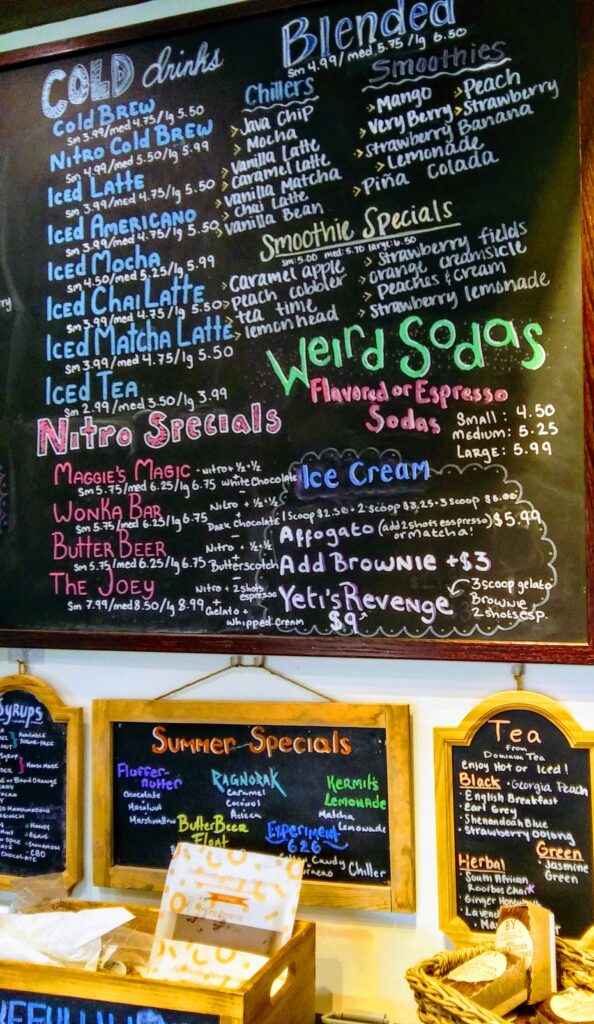 COLD drinks
COLD BREW
sm 3.99/med 4.75/lg 5.50
NITRO COLD BREW
sm 4.99/med 5.50/lg 5.99
ICED LATTE
sm 3.99/med 4.75/lg 5.50
ICED AMERICANO
sm 3.99/med 4.75/lg 5.50
ICED MOCHA
sm 4.50/med 5.25/lg 5.99
ICED CHAI LATTE
sm 3.99/med 4.75/lg 5.50
ICED MATCHA LATTE
sm 3.99/med 4.75/lg 5.50
ICED TEA
sm 2.99/med 3.50/lg 3.99
Blended
sm 4.99/med 5.75/lg 6.50
Chillers
> Java Chip
> Mocha
> Vanilla Latte
> Caramel Latte
> Vanilla Matcha
> Chai Latte
> Vanilla Bean
Smoothies
> Mango
> Very Berry
> Strawberry Banana
> Lemonade
> Piña Colada
> Peach
> Strawberry
Smoothie Specials
sm: 5.00 med: 5.70 large: 6.50
> Caramel apple
> Peach cobbler
> tea time
> lemonhead
> Strawberry fields
> orange creamsicle
> Peaches & Cream
> Strawberry lemonade
Weird Sodas
Flavored or Espresso
Sodas
Small: 4.50
Medium: 5.25
Large: 5.99
Nitro Specials
MAGGIE'S MAGIC - nitro + ½ + ½
sm 5.75/med 6.25/lg 6.75 White Chocolate
WONKA BAR Nitro + ½ + ½
sm 5.75/med 6.25/lg 6.75 Dark Chocolate
BUTTER BEER Nitro + ½ + ½
sm 5.75/med 6.25/lg 6.75 Butterscotch
THE JOEY Nitro + 2 shots espresso
sm 7.99/med 8.50/lg 8.99 + Gelato +
Whipped Cream
Ice Cream
1 scoop $2.50 • 2 scoop $3.25 • 3 scoop $5.00
Affogato (add 2 shots esspresso) $5.99
or matcha!
Add Brownie +$3
Yeti's Revenge
$9
3 scoop gelato
Brownie
2 shots esp.
SYRUPS
Available
Sugar-Free
House Made
Blood Orange
Honey
Agave
Cinnamon
CBD
Chocolate
Summer Specials
Fluffer-
nutter
Chocolate
Hazelnut
Marshmallow
RAGNORAK
Caramel
Coconut
Kermit's
Lemonade
Matcha
Lemonade
ButterBeer
Float
Experiment
626
Cotton Candy
Chiller
Tea
from
Dominion Tea
Enjoy Hot or Iced!
Black
• Georgia Peach
• English Breakfast
• Earl Grey
• Shenandoah Blue
• Strawberry Oolong
Herbal
• South African
Rooibos Chai
• Ginger
Green
Jasmine
Green